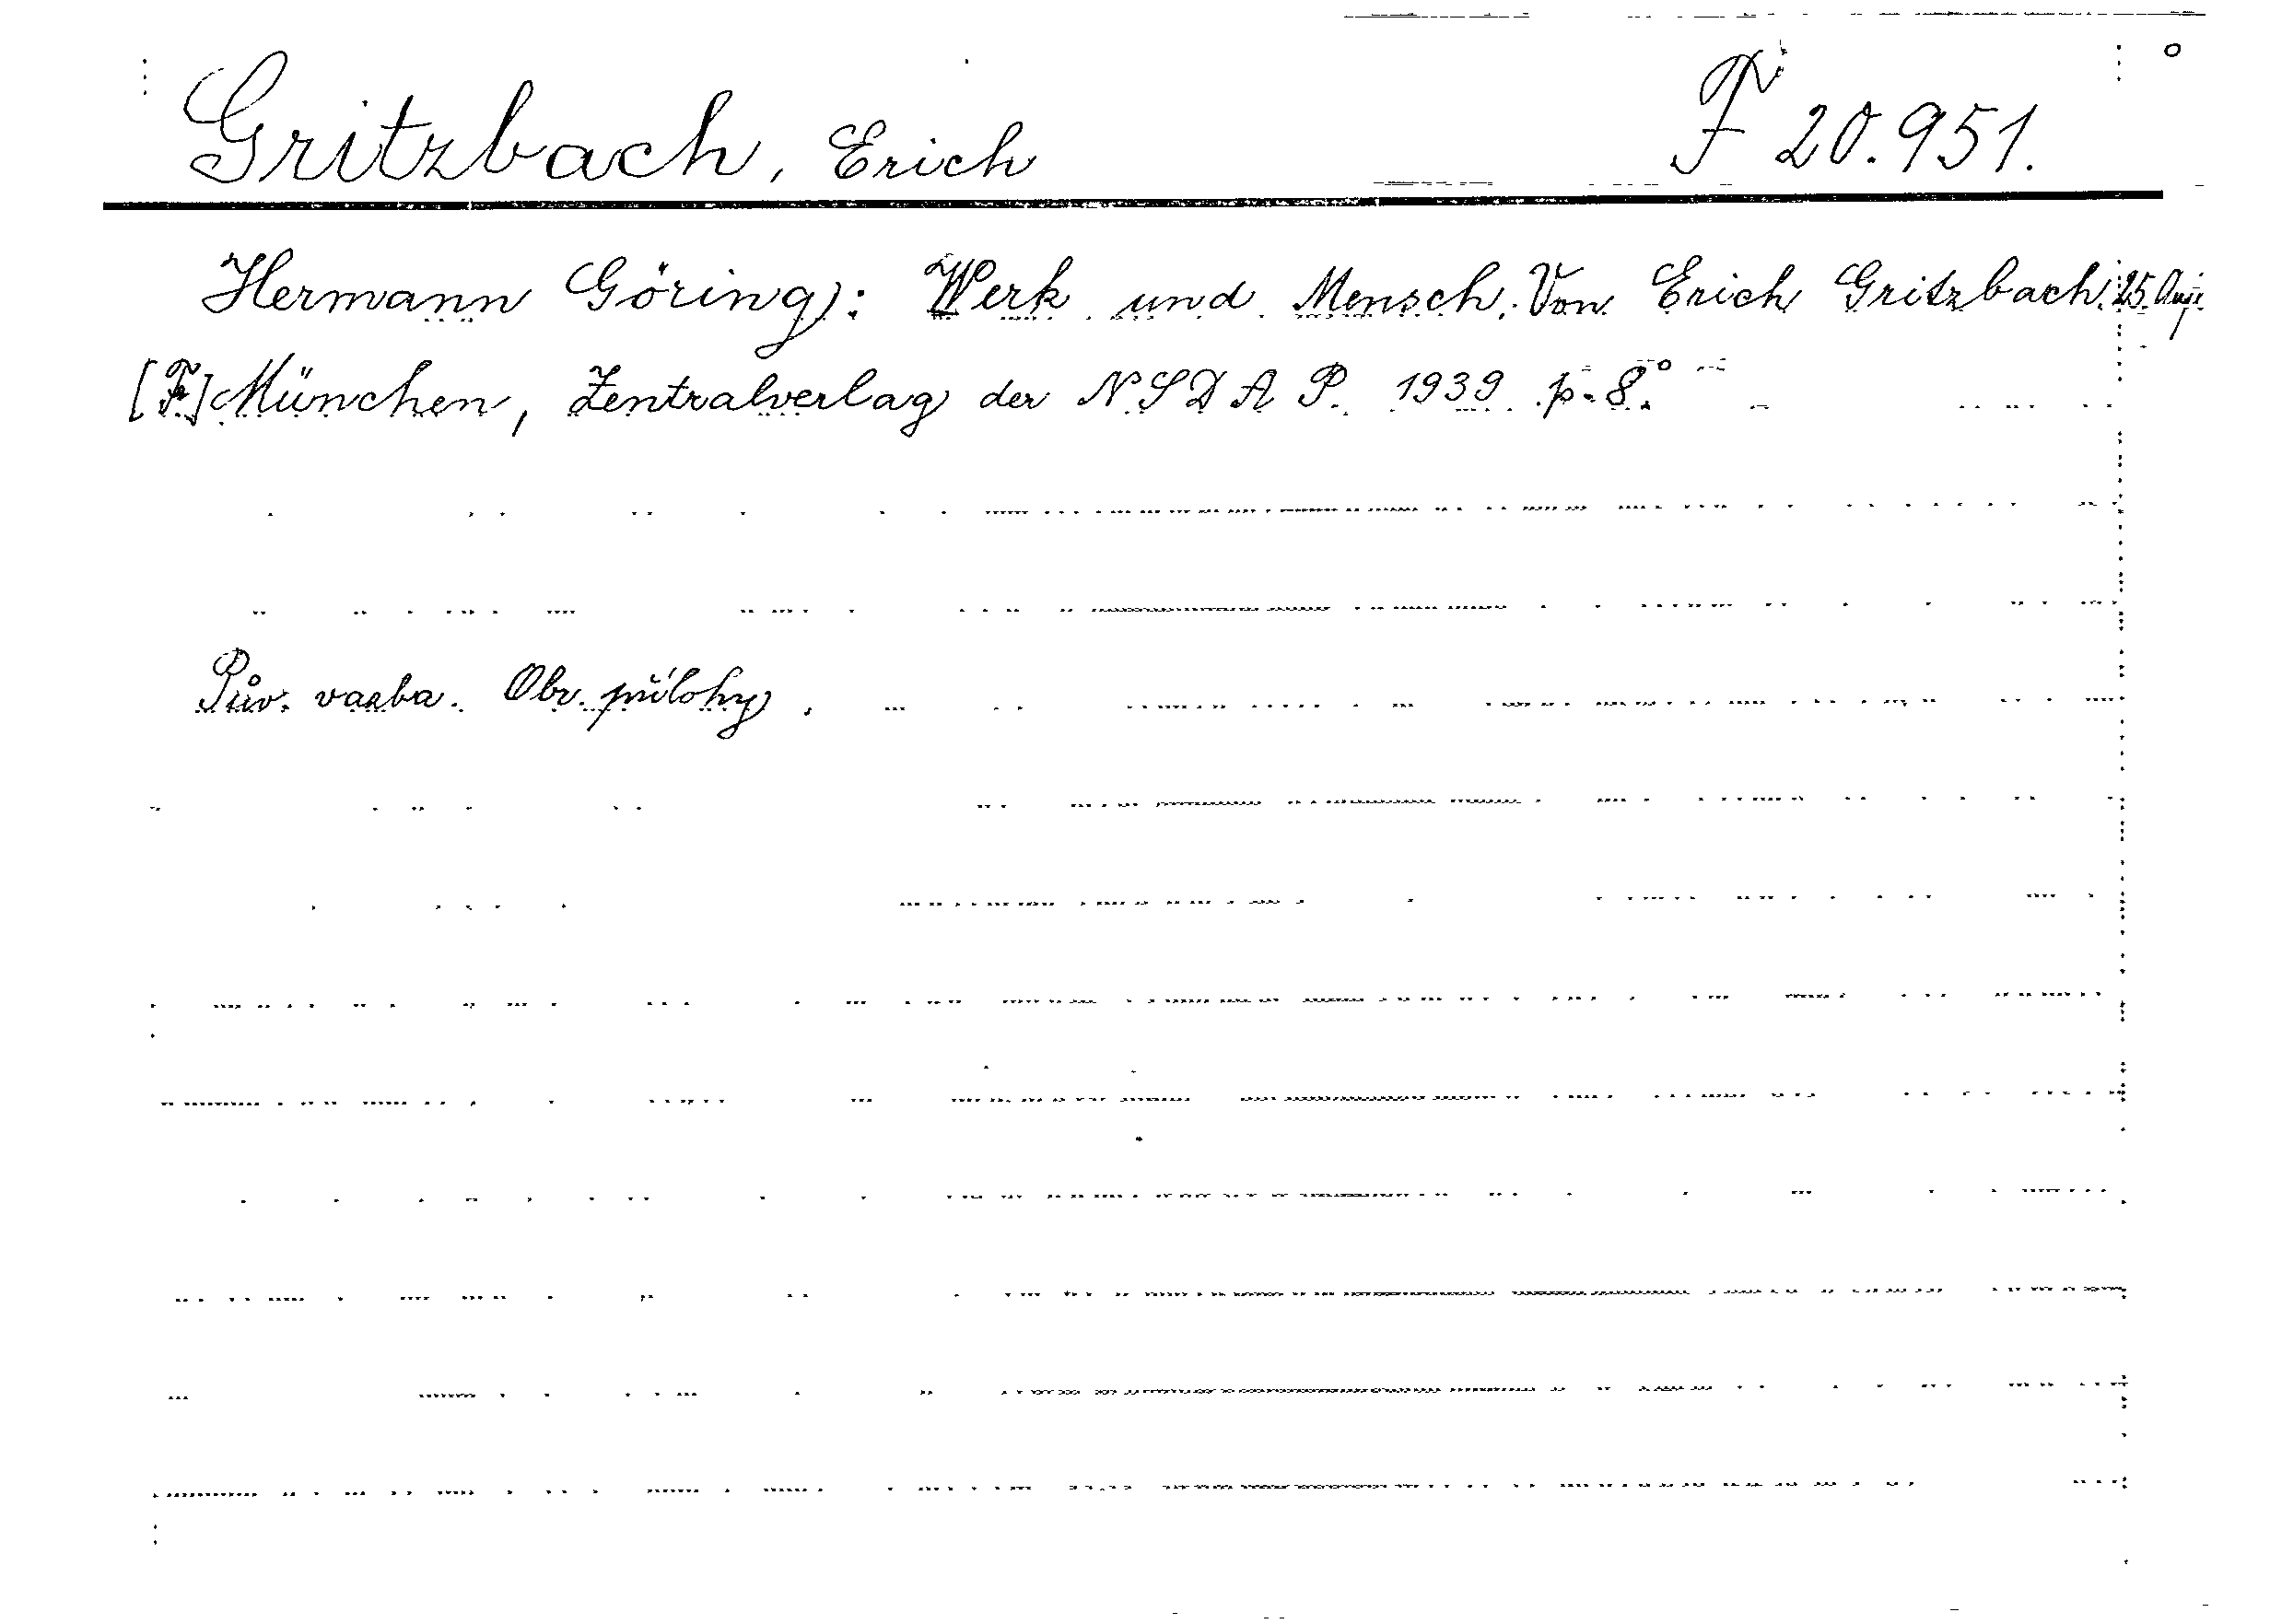 Gritzbach, Erich F 20.951.
Hermann Göring: Werk und Mensch. Von Erich Gritzbach. 25. Aufl.
[F] München, Zentralverlag der NSDAP. 1939. p. 8°
Pův. vazba. Obr. přílohy.